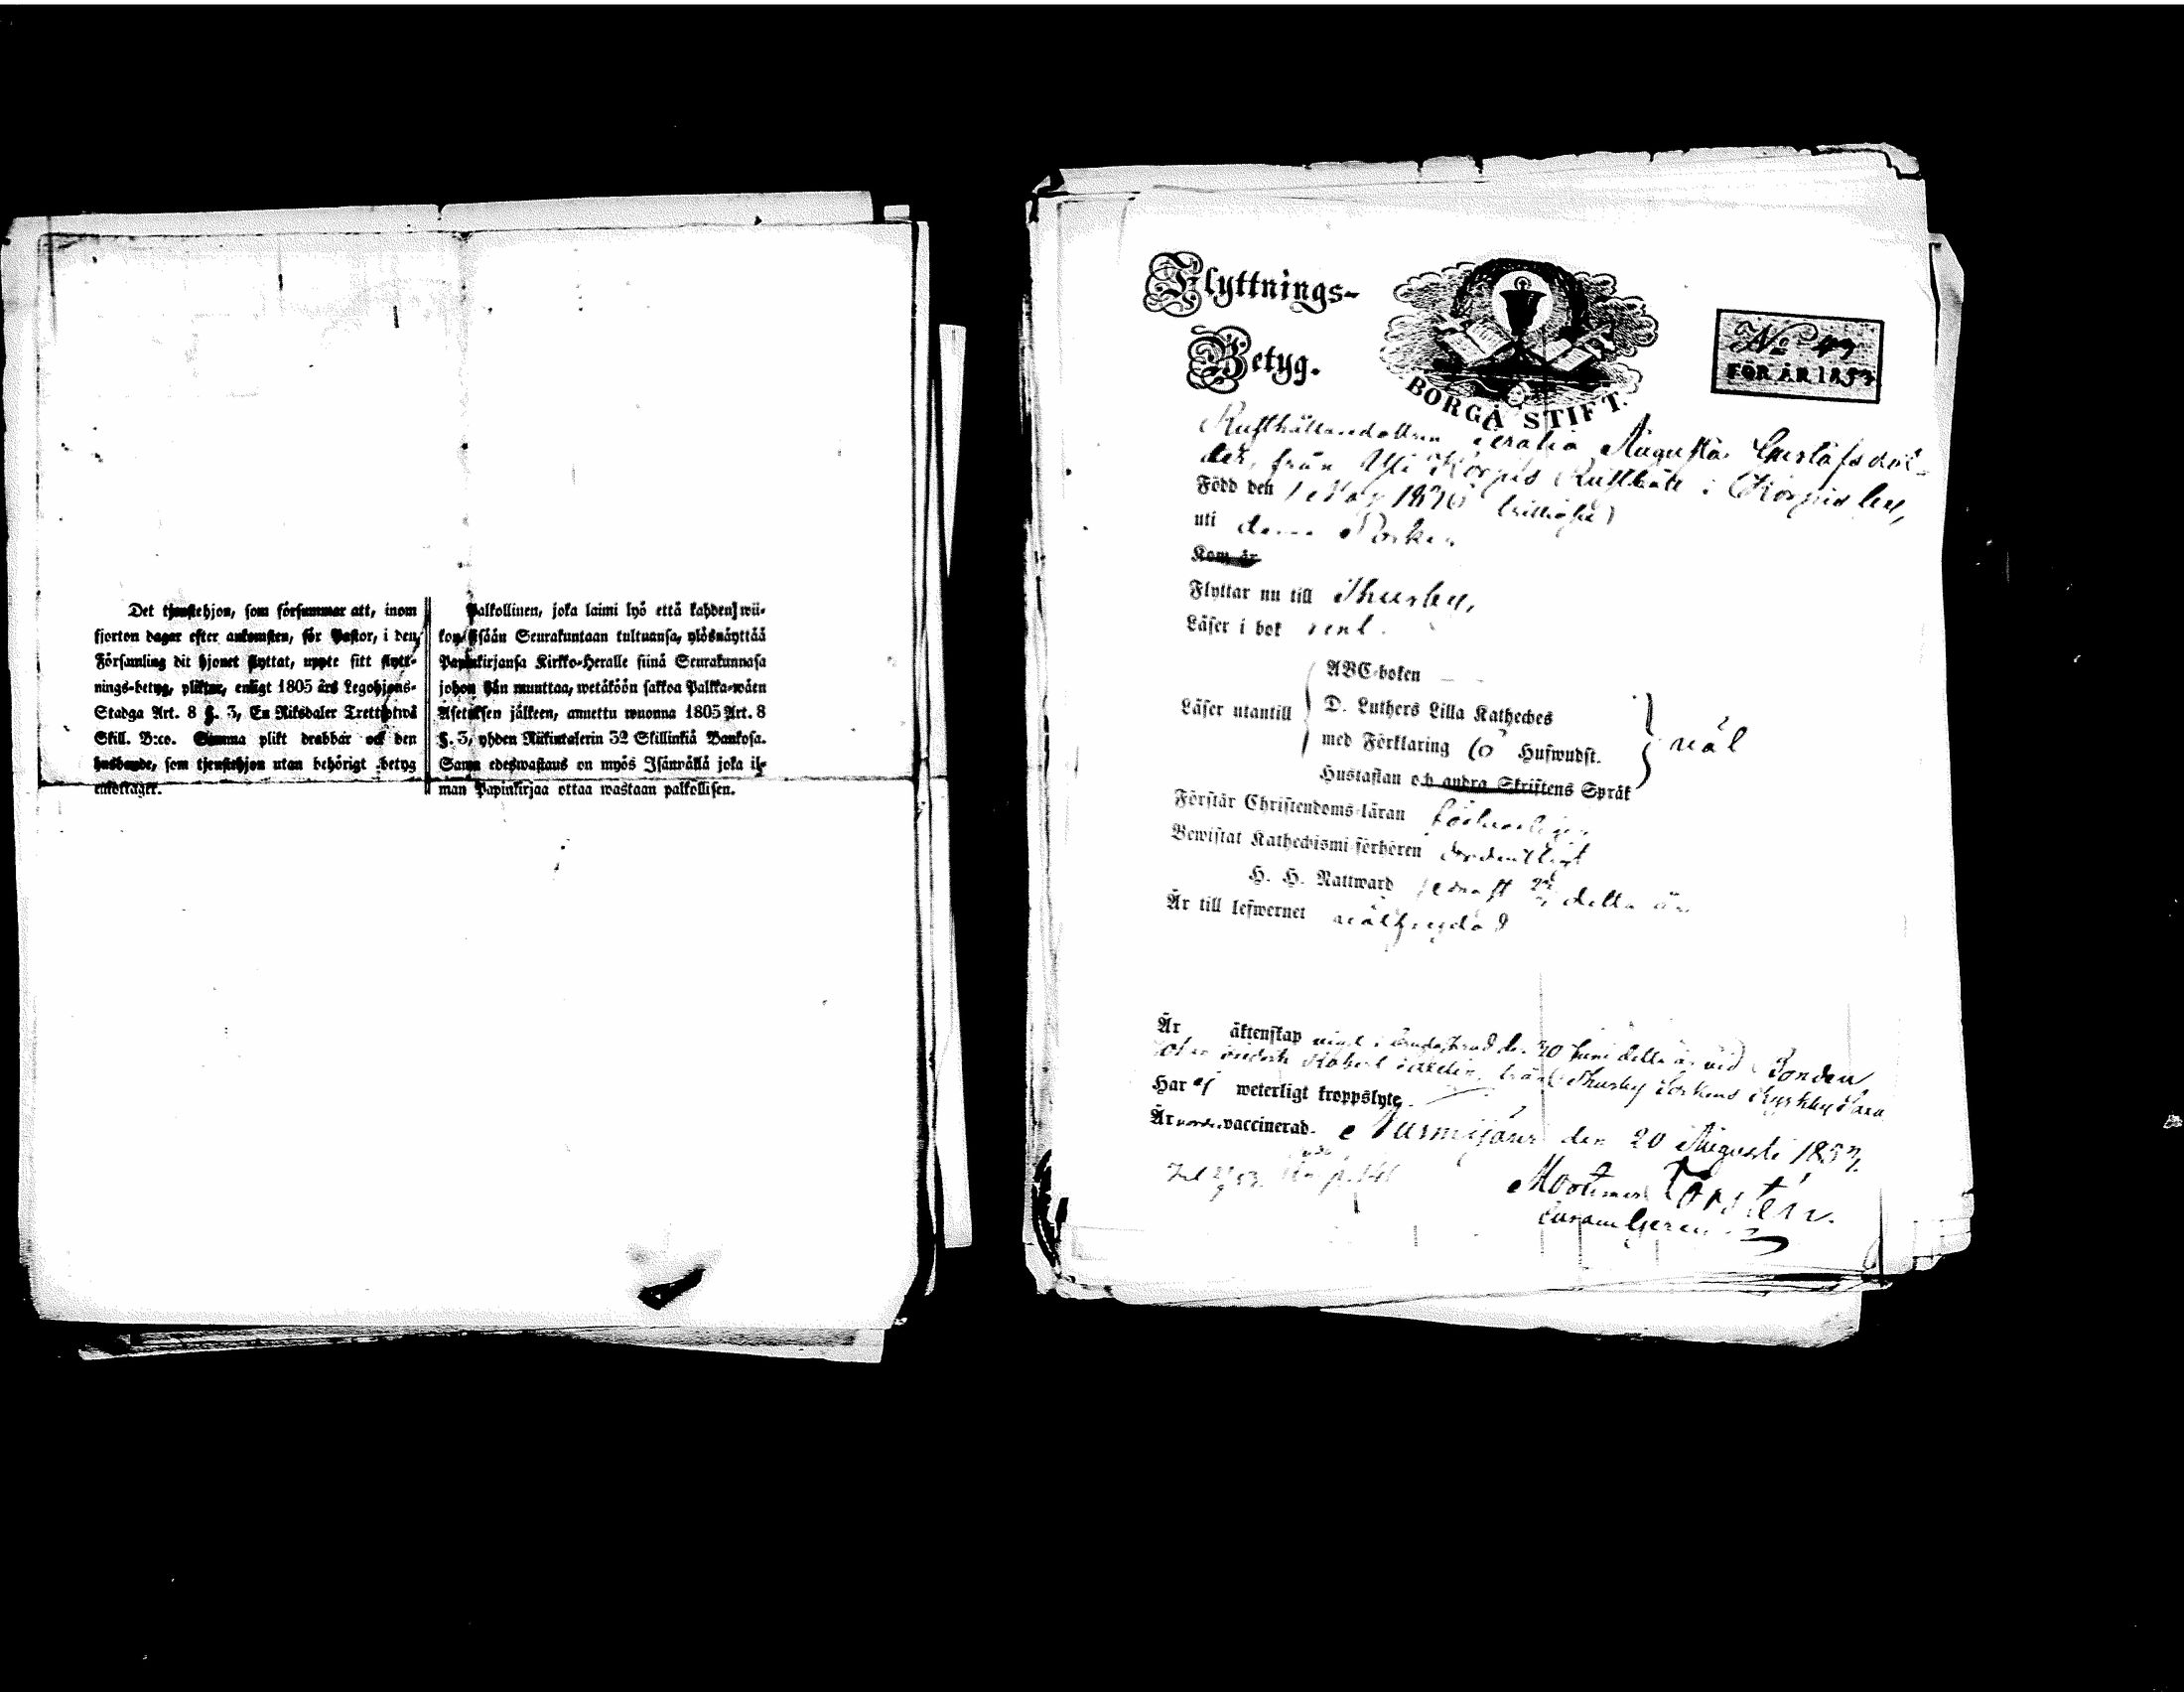 Det tjenstehjon, som försummar att, inom
fjorton dagar efter ankomsten, för Pastor, i den
Församling dit hjonet flyttat, uppte sitt flytt-
nings-betyg, pliktar, enligt 1805 års Legohjons-
Stadga Art. 8 §. 3, En Riksdaler Trettiotwå
Skill. B:co. Samma plikt drabbar ock den
husbonde, som tjenstehjon utan behörigt betyg
emottager.
Palkollinen, joka laimi lyö että kahden wii-
kon sisään Seurakuntaan tultuansa, ylösnäyttää
Papinkirjansa Kirkko-Heralle siinä Seurakunnasa
johon hän muuttaa, wetäköön sakkoa Palkka-wäen
Asetuksen jälkeen, annettu wuonna 1805 Art. 8
§. 3, yhden Riikintalerin 32 Skillinkiä Bankosa.
Sama edeswastaus on myös Isännällä joka il-
man Papinkirjaa ottaa wastaan palkollisen.
Flyttnings-
Betyg.
BORGÅ STIFT.
No 43
FÖR ÅR 1853
Rusthållaredottren Augusta Gustafsdot-
ter, från Yli Korpis Rusthåll i Korpis by,
Född den 18
uti denna Socken
Kom år
Flyttar nu till Thusby,
Läser i bok rent.
Läser utantill
ABC-boken
D. Luthers Lilla Kateches
med Förklaring Hufwudst.
Hustaflan och andra Skriftens Språk
wäl
Förstår Christendoms-läran försvarligen
Bewistat Kathechismi-förhören ordentligt
H. H. Nattward senast detta år
Är till lefwernet wälfrejdad
Är äktenskap vigd i brudstud den 30 Juni detta år vid Bonden
Robert från Thusby Sockens Kyrkby
Har ej weterligt kroppslyte.
Är vaccinerad. Nurmijärvi den 20 Augusti 1853.
Torstén.